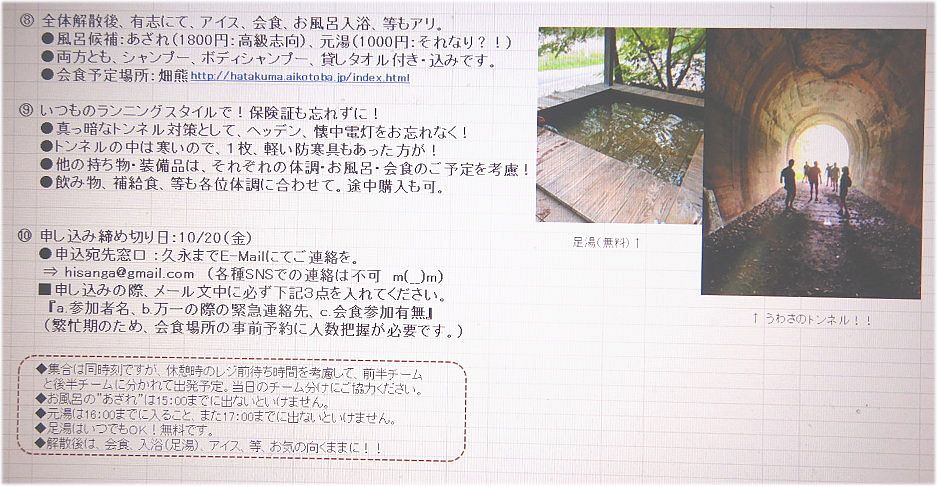 ⑧ 全体解散後、有志にて、アイス、会食、お風呂入浴、等もアリ。
●風呂候補:あざれ(1800円:高級志向)、元湯(1000円:それなり?!)
●両方とも、シャンプー、ボディシャンプー、貸しタオル付き・込みです。
●会食予定場所:畑熊http://hatakuma.aikotoba.jp/index.html
⑨ いつものランニングスタイルで!保険証も忘れずに!
●真っ暗なトンネル対策として、ヘッデン、懐中電灯をお忘れなく!
●トンネルの中は寒いので、1枚、軽い防寒具もあった方が!
●他の持ち物・装備品は、それぞれの体調・お風呂・会食のご予定を考慮!
●飲み物、補給食、等も各位体調に合わせて。途中購入も可。
足湯(無料)↑
↑うわさのトンネル!!
⑩ 申し込み締め切り日:10/20(金)
●申込宛先窓口:久永までE-Mailにてご連絡を。
⇒ hisanga@gmail.com (各種SNSでの連絡は不可 m(__)m)
■申し込みの際、メール文中に必ず下記3点を入れてください。
『a.参加者名、b.万一の際の緊急連絡先、c.会食参加有無』
(繁忙期のため、会食場所の事前予約に人数把握が必要です。)
◆集合は同時刻ですが、休憩時のレジ前待ち時間を考慮して、前半チーム
と後半チームに分かれて出発予定。当日のチーム分けにご協力ください。
◆お風呂の"あざれ"は15:00までに出ないといけません。
◆元湯は16:00までに入ること、また17:00までに出ないといけません。
◆足湯はいつでもOK!無料です。
◆解散後は、会食、入浴(足湯)、アイス、等、お気の向くままに!!